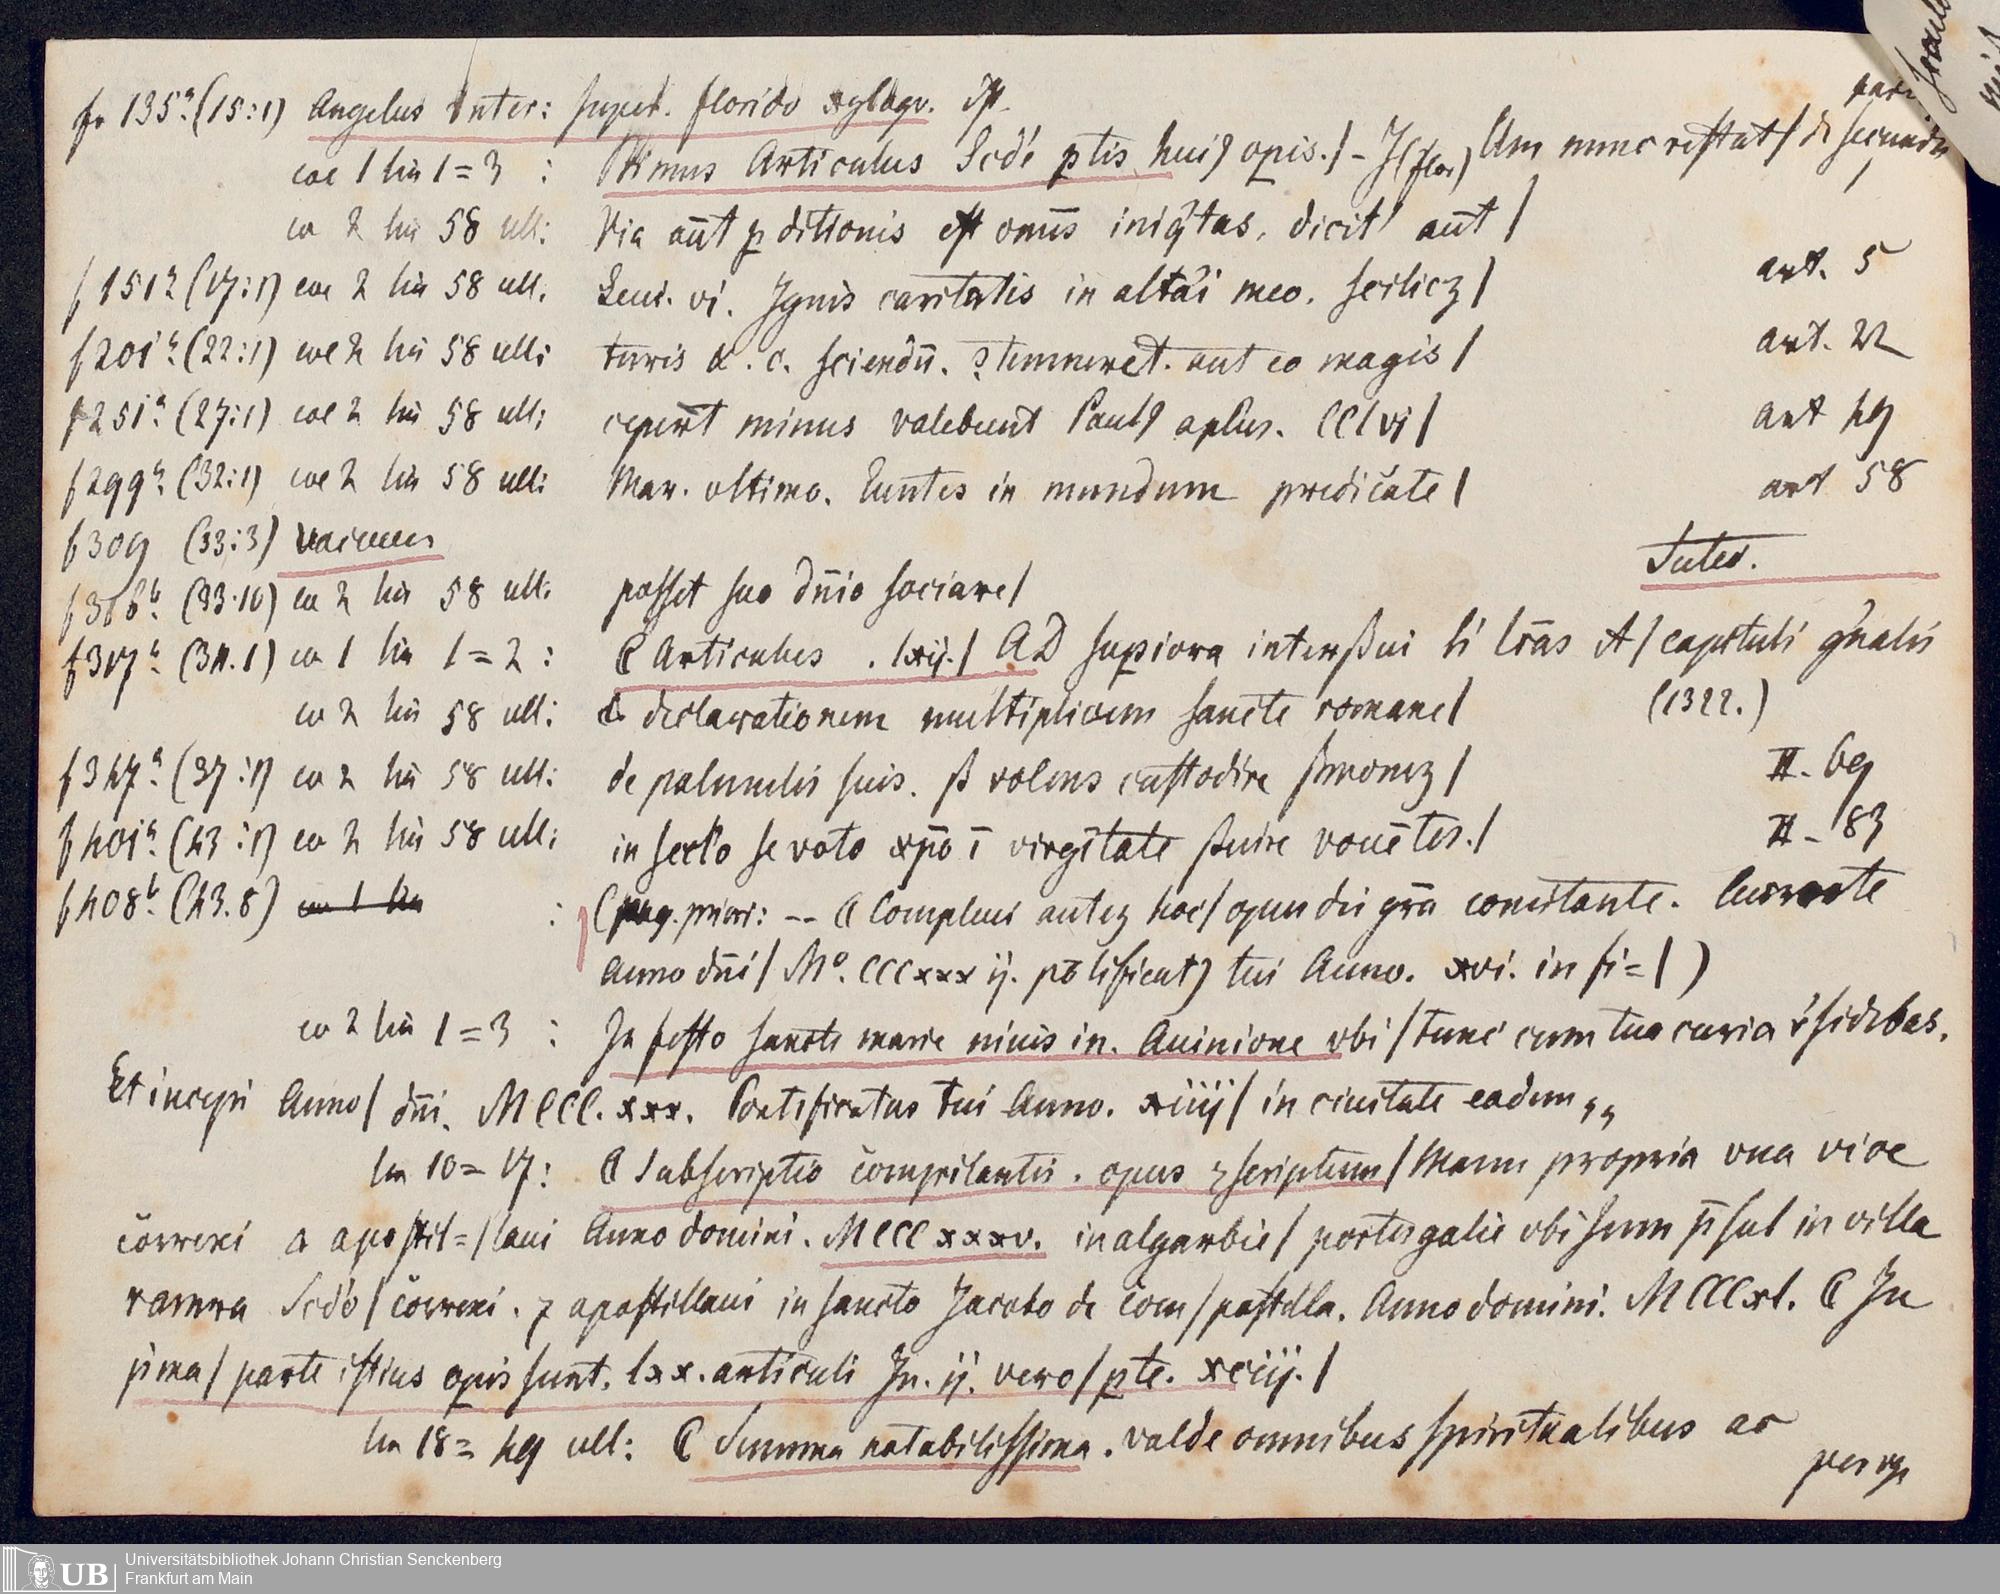 f. 135ª (15:1) Angelus Inter: super. florido xylogr. Ip.
col 1 lin 1=3 : Primus Articulus Scdé ptis hui9 opis./ - I(flor) Am nunc restat/ de secunda parte
co 2 lin 58 ult: Via aūt pditionis est omīs iniq̇tas. dicit' aūt /
f 151ª (17:1) col 2 lin 58 ult. Leui. vi. Ignis caritatis in altāi meo. scilicz / art. 5
f 201ª (22:1) col 2 lin 58 ult: turis &. c. sciendū. 9temneret. aut eo magis / art. 22
f 251ª (27:1) col 2 lin 58 ult: ceperūt minus valebunt Paul9 aplus. CClvj / art 49
f 299ª (32:1) col 2 lin 58 ult: Mar. ultimo. Euntes in mundum predicāte / art 58
f 309 (33:3) vacuum
f 316ᵇ (33.10) co 2 lin 58 ult: posset suo dn̄io sociare/ Inter.
f 317ª (34.1) co 1 lin 1=2 : C Articulus . lxij./ AD supiora interserui hi lrās A/ capituli gn̄alis
co 2 lin 58 ult: & declarationem multiplicem sancte romane/ (1322.)
f 347ª (37:1) co 2 lin 58 ult: de palumelis suis. ß volens custodire sermonez / II. 69
f 401ª (43:1) co 2 lin 58 ult: in seclo se voto xpō ī virgītate seruire vouētes./ II - 83
f 408ᵇ (43.8) co 1 lin : (pag. prior: -- C Compleui autez hoc/ opus dei grā comitante. Currente
Anno dn̄i/ Mº. CCCxxxij. pōtificat9 tui Anno. xvi. in fi=/ )
co 2 lin 1=3 : In festo sancte marie niuis in. Auinione vbi / tunc cum tua curia r̄sidebas.
Et incepi Anno/ dn̄i. MCCC. xxx. Pontificatus tui Anno. xiiij/ in ciuitate eadem,,
lin 10=17: C Subscriptio compilantis . opus 7 scriptum/ Manu propria vna vice
correxi a apostil=/laui Anno domini. MCCCxxxv. in algarbie/ portugalie vbi sum p̄sul in villa
ramra Scdō/ correxi . 7 apostillaui in sancto Jacobo de com/postella. Anno domini. MCCCxl. C In
p̄ima/ parte istius opis sunt. lxx. articuli In. ij. vero/ pte. xciij./
lin 18=49 ult: C Summa notabilissima . valde omnibus spiritualibus ac
Universitätsbibliothek Johann Christian Senckenberg
UB Frankfurt am Main